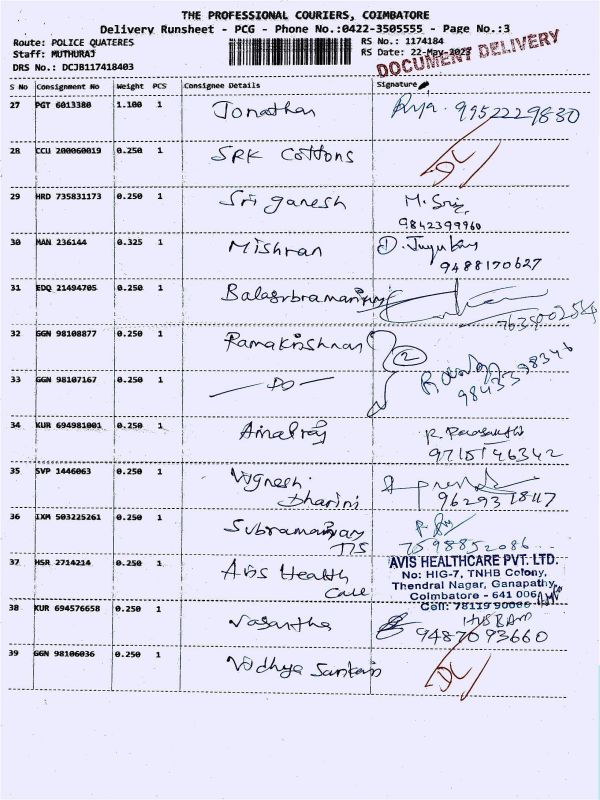 THE PROFESSIONAL COURIERS, COIMBATORE
Delivery Runsheet - PCG - Phone No.:0422-3505555 - Page No.:3
Route: POLICE QUATERES
RS No.: 1174184
Staff: MUTHURAJ
RS Date: 22-May-2023
DRS No.: DCJB117418403
DOCUMENT DELIVERY
S No Consignment No Weight PCS Consignee Details Signature
27 PGT 6013380 1.100 1 Jonathan 9952229830
28 CCU 200060019 0.250 1 SRK Cottons DL
29 HRD 735831173 0.250 1 Sri ganesh M. Sri
9842399960
30 MAN 236144 0.325 1 Mishran
9488170627
31 EDQ 21494705 0.250 1
32 GGN 98108877 0.250 1 Ramakrishnan 2
33 GGN 98107167 0.250 1 — DO — 9843398346
34 KUR 694981001 0.250 1 Amalraj R.
9715146342
35 SVP 1446063 0.250 1 Vignesh
Dharini
36 IXM 503225261 0.250 1 Subramaniyam
7598852086
37 HSR 2714214 0.250 1 Avis Health
Care
AVIS HEALTHCARE PVT. LTD.
No: HIG-7, TNHB Colony,
Thendral Nagar, Ganapathy,
Coimbatore - 641 006
Cell: 78119 90000
38 KUR 694576658 0.250 1 Vasantha HUSBAND
9487093660
39 GGN 98106036 0.250 1 Vidhya DL